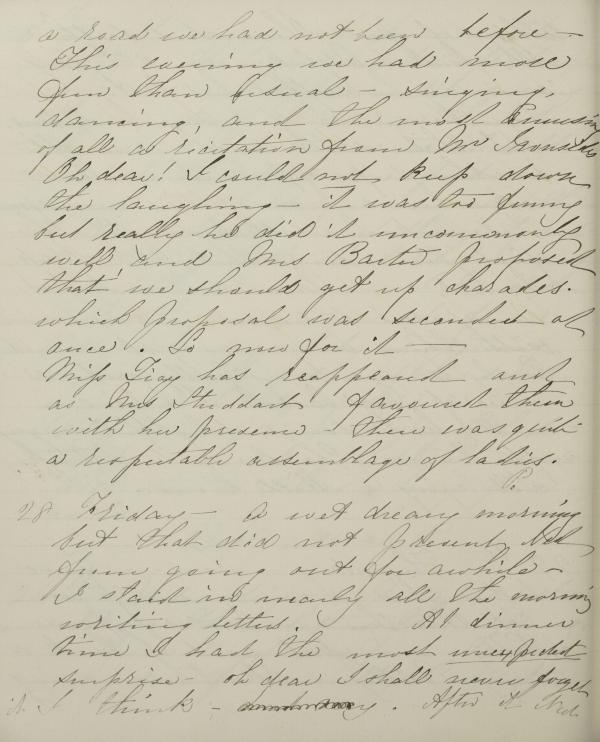 a road we had not been before —
This evening we had more
fun than usual — singing,
dancing, and the most amusing
of all a recitation from Mr Ironsides
Oh dear! I could not keep down
the laughing — it was too funny
but really he did it uncommonly
well and Mrs Barter proposed
that we should get up charades.
which proposal was seconded at
once. So now for it —
Miss has reappeared and
as Mrs Studdart favoured them
with her presence — there was quite
a respectable assemblage of ladies.
P.
28 Friday — a wet dreary morning
but that did not prevent Ned
from going out for awhile —
I staid in nearly all the morning
writing letters. At dinner
time I had the most unexpected
surprise — oh dear I shall never forget
it I think — . After it Ned